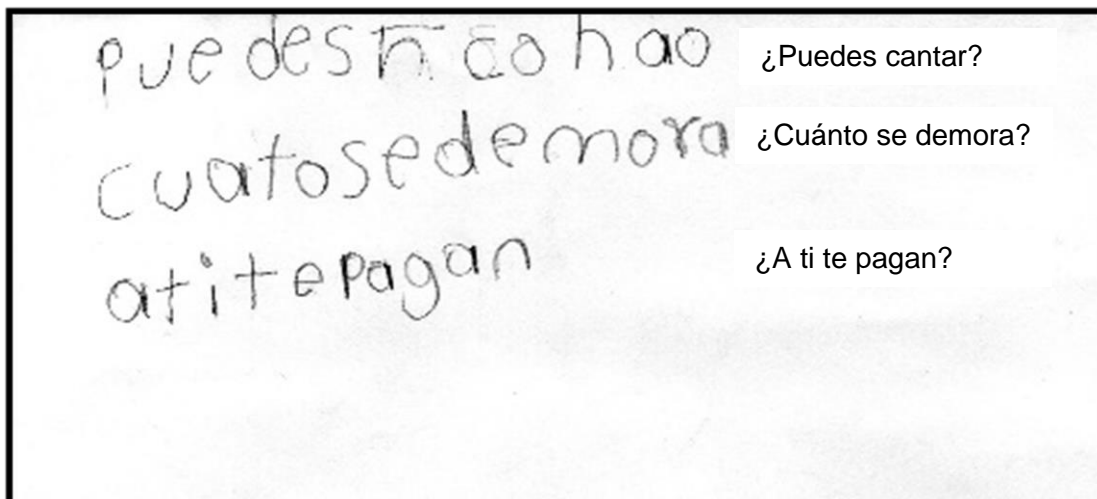 puedes ñ cohao ¿Puedes cantar?
cuatosedemora ¿Cuánto se demora?
atitepagan ¿A ti te pagan?